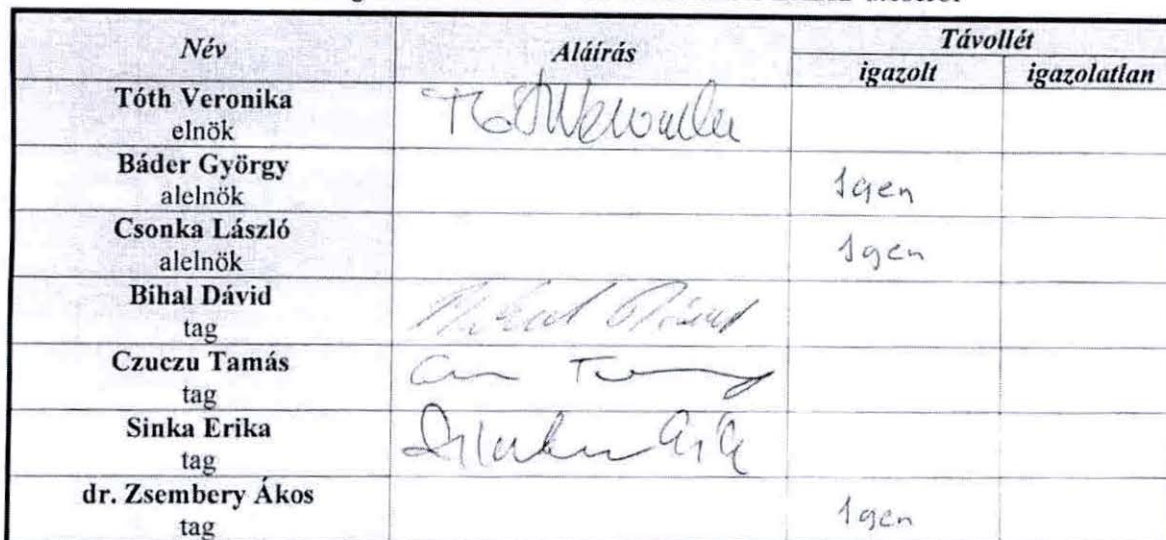 Név Aláírás Távollét
igazolt igazolatlan
Tóth Veronika
elnök
Tóth Veronika
Báder György
alelnök
Igen
Csonka László
alelnök
Igen
Bihal Dávid
tag
Bihal Dávid
Czuczu Tamás
tag
Sinka Erika
tag
dr. Zsembery Ákos
tag
Igen